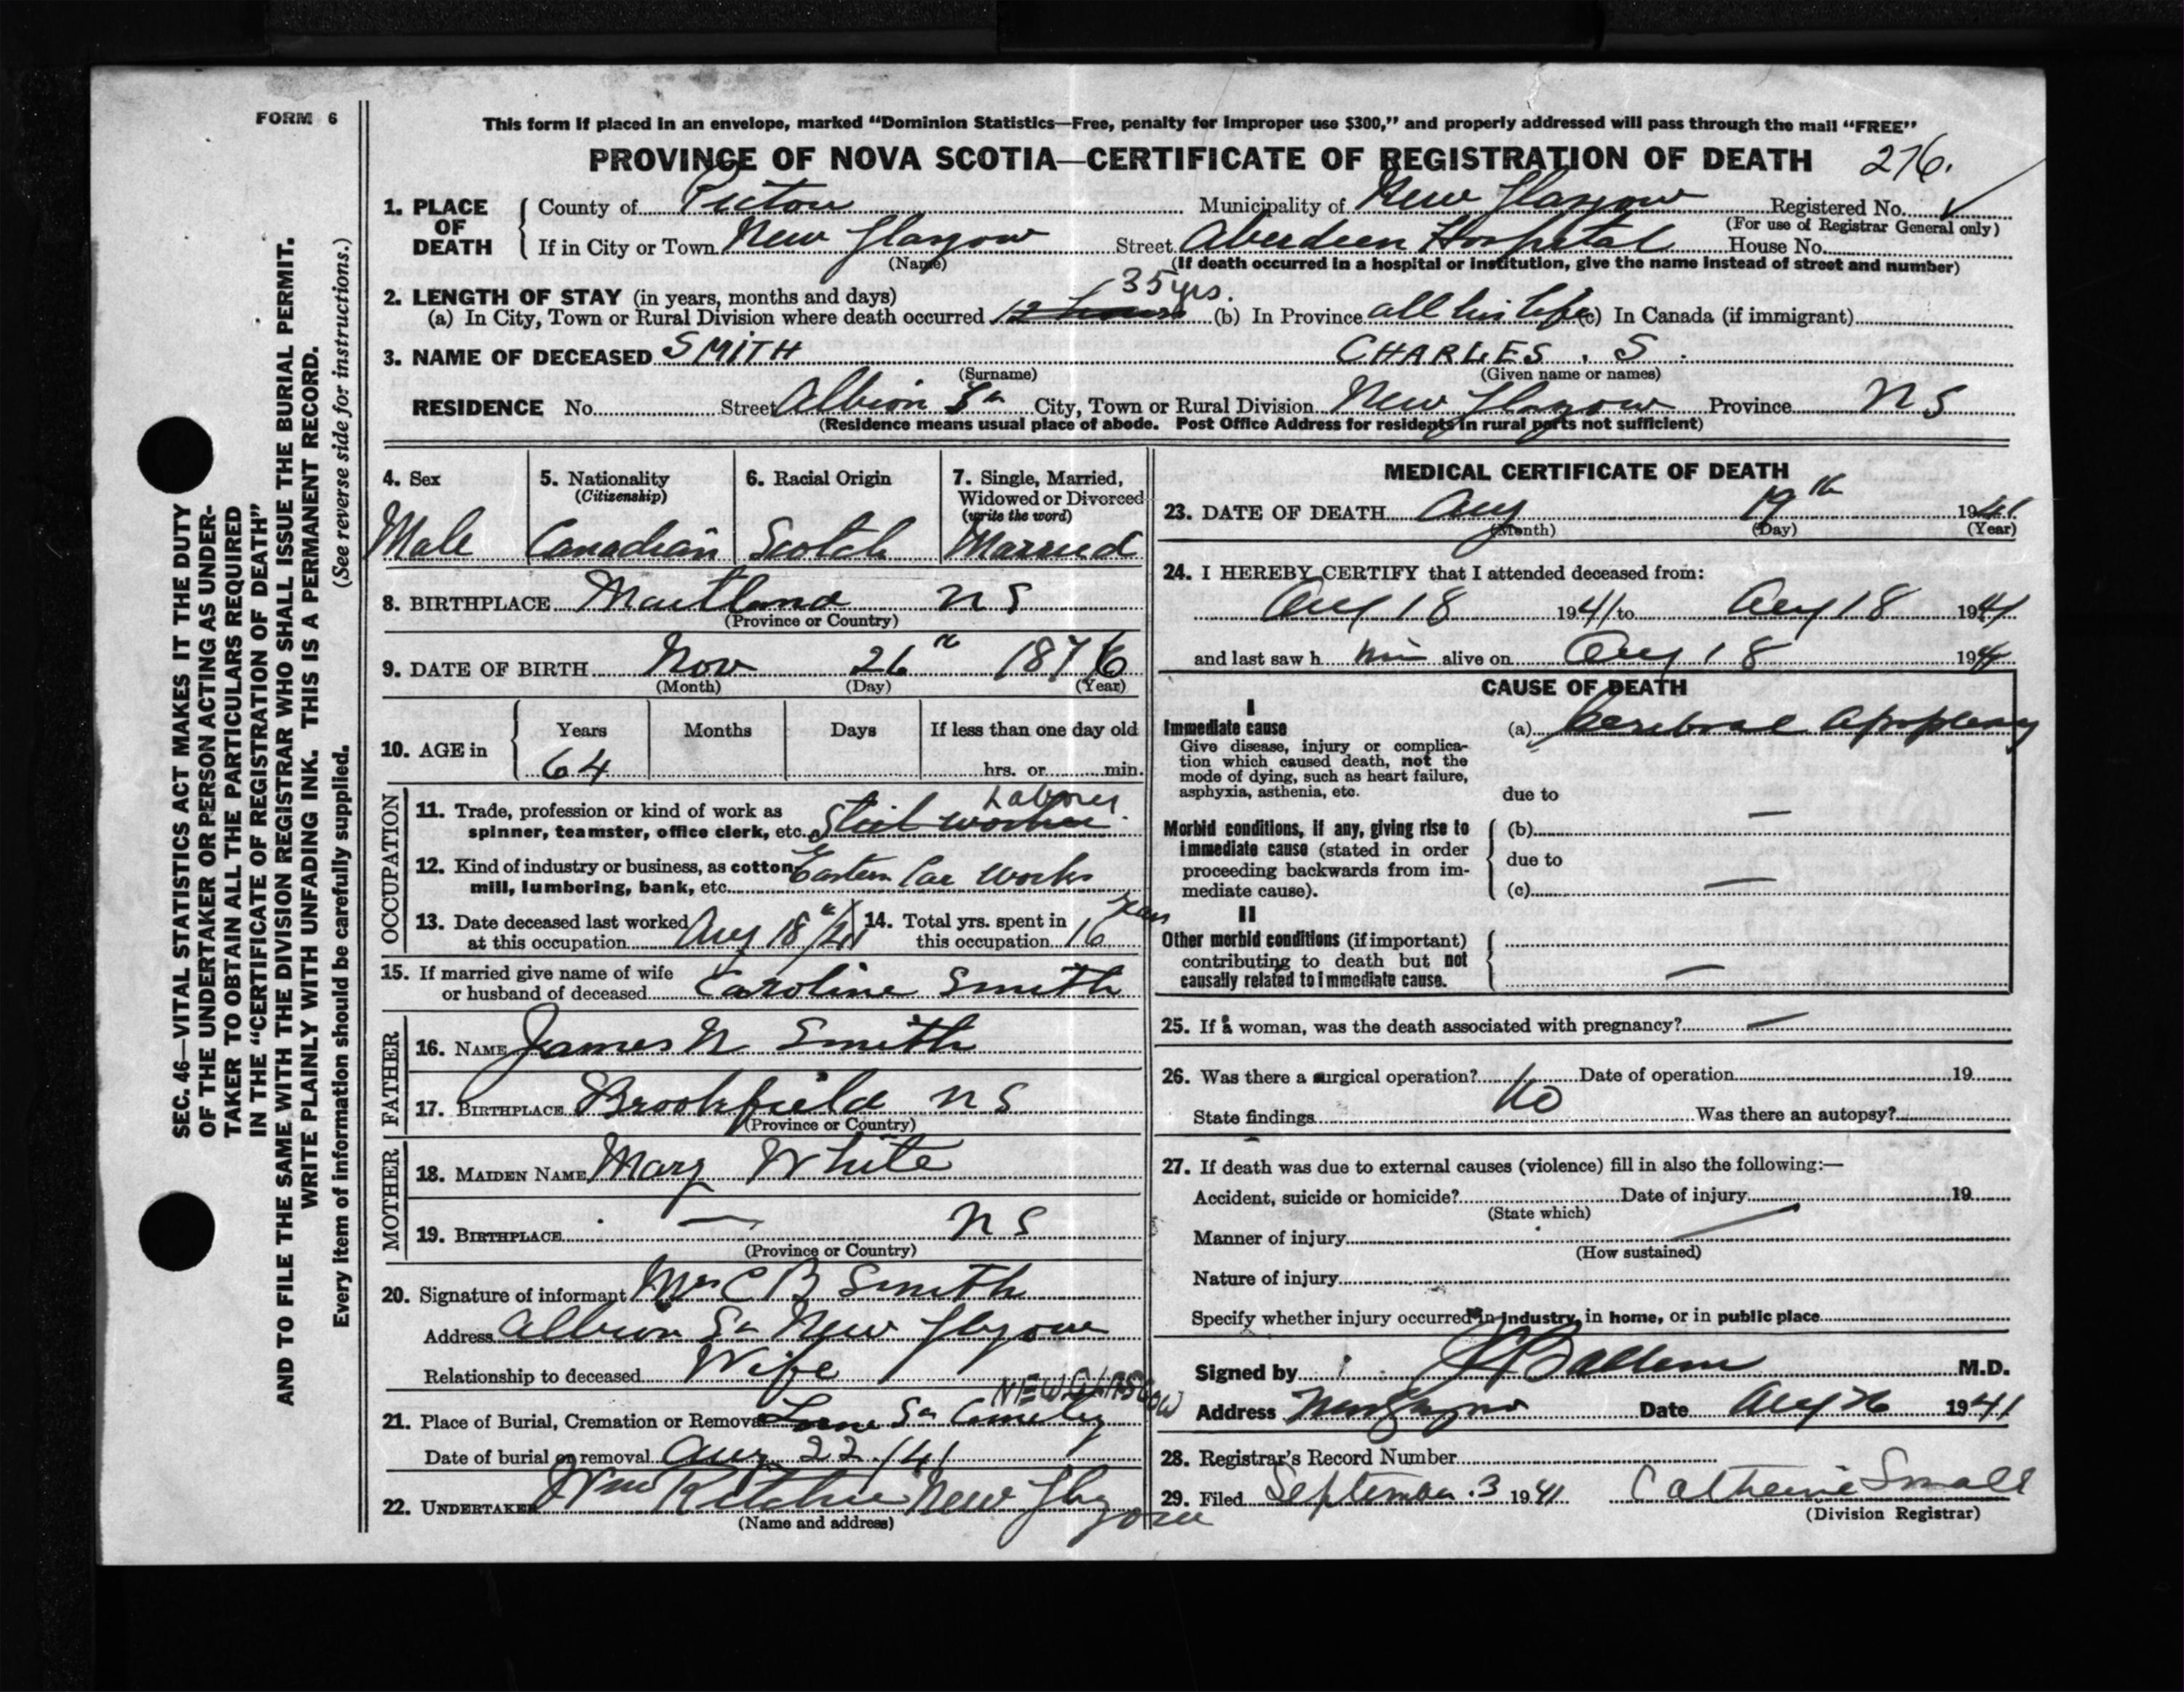 FORM 6
This form if placed in an envelope, marked “Dominion Statistics—Free, penalty for improper use $300,” and properly addressed will pass through the mail “FREE”
PROVINCE OF NOVA SCOTIA—CERTIFICATE OF REGISTRATION OF DEATH 276.
1. PLACE OF DEATH
County of Pictou Municipality of New Glasgow Registered No. ✓
(For use of Registrar General only)
If in City or Town New Glasgow Street Aberdeen Hospital House No.
(Name) (If death occurred in a hospital or institution, give the name instead of street and number)
2. LENGTH OF STAY (in years, months and days) 35 yrs.
(a) In City, Town or Rural Division where death occurred 12 hours (b) In Province all his life (c) In Canada (if immigrant)
3. NAME OF DECEASED SMITH CHARLES . S .
(Surname) (Given name or names)
RESIDENCE No. Street Albion St City, Town or Rural Division New Glasgow Province N S
(Residence means usual place of abode. Post Office Address for residents in rural parts not sufficient)
4. Sex
Male
5. Nationality
(Citizenship)
Canadian
6. Racial Origin
Scotch
7. Single, Married,
Widowed or Divorced
(write the word)
Married
8. BIRTHPLACE Maitland N S
(Province or Country)
9. DATE OF BIRTH Nov 26th 1876
(Month) (Day) (Year)
10. AGE in
Years Months Days If less than one day old
64 hrs. or min.
OCCUPATION
11. Trade, profession or kind of work as Laborer
spinner, teamster, office clerk, etc. Steel worker.
12. Kind of industry or business, as cotton Eastern Car Works
mill, lumbering, bank, etc.
13. Date deceased last worked
at this occupation Aug 18th/41
14. Total yrs. spent in years
this occupation 16
15. If married give name of wife
or husband of deceased Caroline Smith
FATHER
16. NAME James N Smith
17. BIRTHPLACE Brookfield N S
(Province or Country)
MOTHER
18. MAIDEN NAME Mary White
19. BIRTHPLACE — N S
(Province or Country)
20. Signature of informant Mrs C B Smith
Address Albion St New Glasgow
Relationship to deceased Wife
NEW GLASGOW
21. Place of Burial, Cremation or Removal Lorne St Cemetery
Date of burial or removal Aug 22 /41
22. UNDERTAKER Wm Ritchie New Glasgow
(Name and address)
MEDICAL CERTIFICATE OF DEATH
23. DATE OF DEATH Aug 19th 1941
(Month) (Day) (Year)
24. I HEREBY CERTIFY that I attended deceased from:
Aug 18 1941 to Aug 18 1941
and last saw h im alive on Aug 18 194
CAUSE OF DEATH
I
Immediate cause (a) Cerebral Apoplexy
Give disease, injury or complica-
tion which caused death, not the
mode of dying, such as heart failure,
asphyxia, asthenia, etc. due to
Morbid conditions, if any, giving rise to (b) —
immediate cause (stated in order due to
proceeding backwards from im-
mediate cause). (c) —
II
Other morbid conditions (if important)
contributing to death but not
causally related to immediate cause. —
25. If a woman, was the death associated with pregnancy? —
26. Was there a surgical operation? No Date of operation 19
State findings Was there an autopsy?
27. If death was due to external causes (violence) fill in also the following:—
Accident, suicide or homicide? Date of injury 19
(State which)
Manner of injury
(How sustained)
Nature of injury
Specify whether injury occurred in industry, in home, or in public place
Signed by Ballem M.D.
Address New Glasgow Date Aug 26 1941
28. Registrar's Record Number
29. Filed September 3 1941 Catherine Small
(Division Registrar)
SEC. 46—VITAL STATISTICS ACT MAKES IT THE DUTY
OF THE UNDERTAKER OR PERSON ACTING AS UNDER-
TAKER TO OBTAIN ALL THE PARTICULARS REQUIRED
IN THE “CERTIFICATE OF REGISTRATION OF DEATH”
AND TO FILE THE SAME WITH THE DIVISION REGISTRAR WHO SHALL ISSUE THE BURIAL PERMIT.
WRITE PLAINLY WITH UNFADING INK. THIS IS A PERMANENT RECORD.
Every item of information should be carefully supplied. (See reverse side for instructions.)